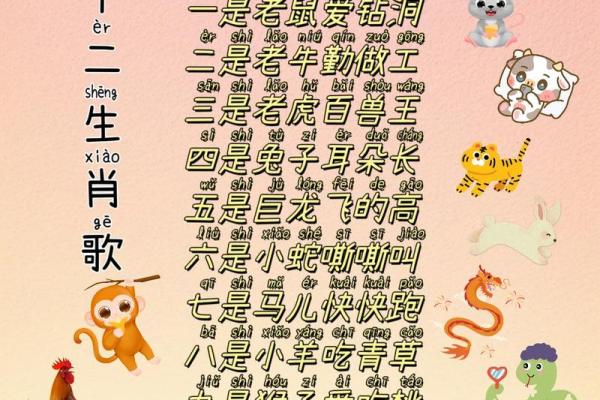 èr
二
shēng
生
xiào
肖
gē
歌
一是老鼠爱钻洞
èr shì lǎo niú qín zuò gōng
二是老牛勤做工
sān shì lǎo hǔ bǎi shòu wáng
三是老虎百兽王
sì shì tù zi ěr duǒ cháng
四是兔子耳朵长
wǔ shì jù lóng fēi de gāo
五是巨龙飞的高
liù shì xiǎo shé sī sī jiào
六是小蛇嘶嘶叫
qī shì mǎ ér kuài kuài pǎo
七是马儿快快跑
bā shì xiǎo yáng chī qīng cǎo
八是小羊吃青草
jiǔ shì hóu zi ài chī táo
九是猴子爱吃桃